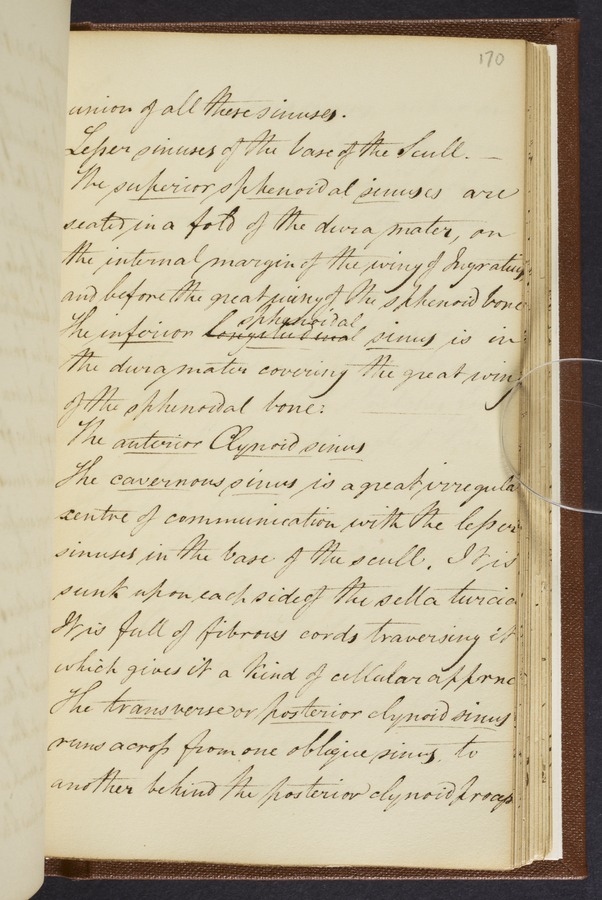 170
union of all these sinuses.
Lesser sinuses of the base of the Scull. —
The superior sphenoidal sinuses are
seated in a fold of the dura mater, on
the internal margin of the wing of Ingratius,
and before the great wing of the sphenoid bone
sphenoidal
The inferior longitudinal sinus is in
the dura mater covering the great wing
of the sphenoidal bone:
The anterior Clynoid sinus
The cavernous sinus is a great irregula
centre of communication with the lesser
sinuses in the base of the scull. It is
sunk upon each side of the sella turcica
It is full of fibrous cords traversing it
which gives it a kind of cellular apprnc
The transverse or posterior clynoid sinus
runs across from one oblique sinus, to
another behind the posterior clynoid proces